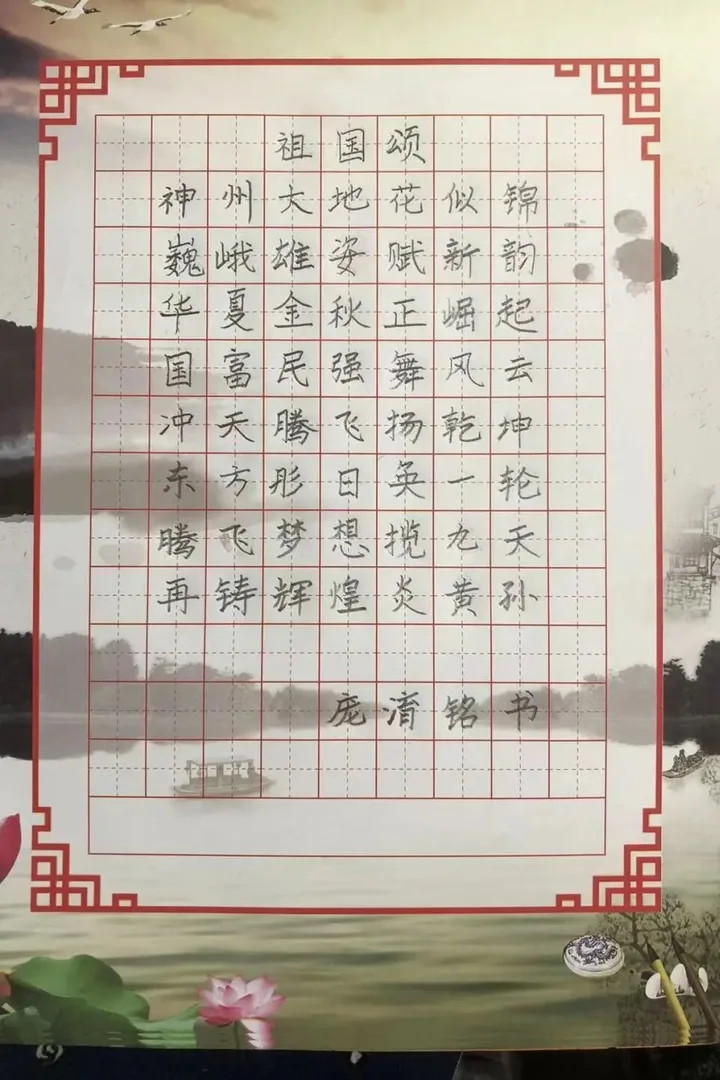 祖国颂
神州大地花似锦
巍峨雄姿赋新韵
华夏金秋正崛起
国富民强舞风云
冲天腾飞扬乾坤
东方彤日英一轮
腾飞梦想揽九天
再铸辉煌炎黄孙
庞淯铭书